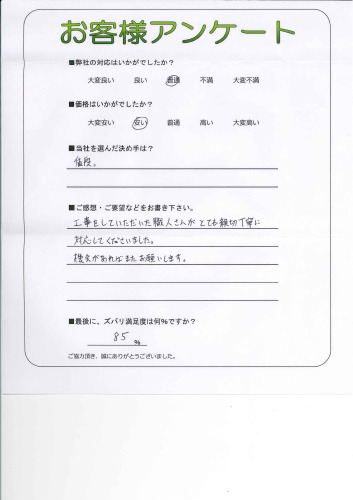 お客様アンケート
■弊社の対応はいかがでしたか?
大変良い 良い 普通 不満 大変不満
■価格はいかがでしたか?
大変安い 安い 普通 高い 大変高い
■当社を選んだ決め手は?
値段。
■ご感想・ご要望などをお書き下さい。
工事をしていただいた職人さんが とても親切丁寧に
対応してくださいました。
機会があればまたお願いします。
■最後に、ズバリ満足度は何%ですか?
85 %
ご協力頂き、誠にありがとうございました。